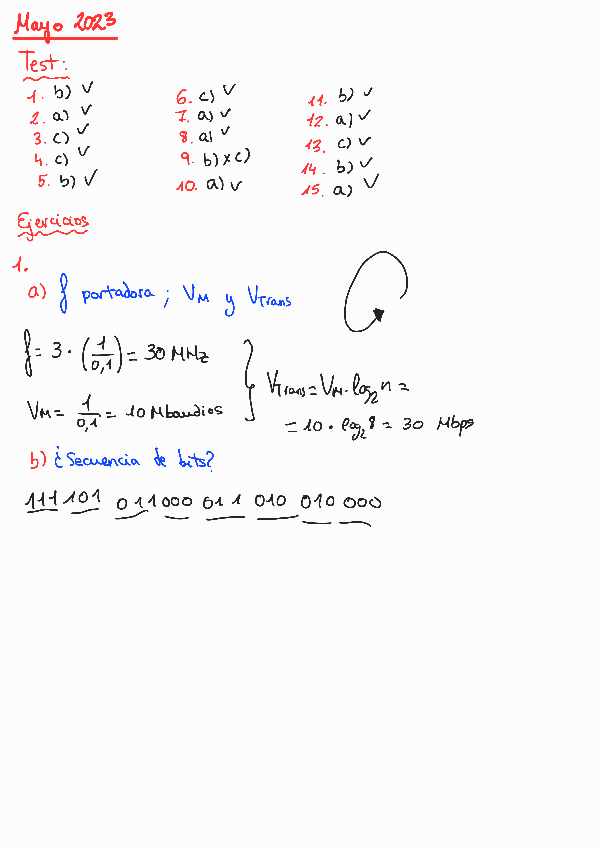 Mayo 2023
Test:
1. b) ✓ 6. c) ✓ 11. b) ✓
2. a) ✓ 7. a) ✓ 12. a) ✓
3. c) ✓ 8. a) ✓ 13. c) ✓
4. c) ✓ 9. b) x c) 14. b) ✓
5. b) ✓ 10. a) ✓ 15. a) ✓
Ejercicios
1.
a) f portadora ; VM y VTrans
f = 3 · (1/0,1) = 30 MHz
VM = 1/0,1 = 10 Mbaudios
VTrans = VM · log2 n =
= 10 · log2 8 = 30 Mbps
b) ¿Secuencia de bits?
111 101 011 000 011 010 010 000